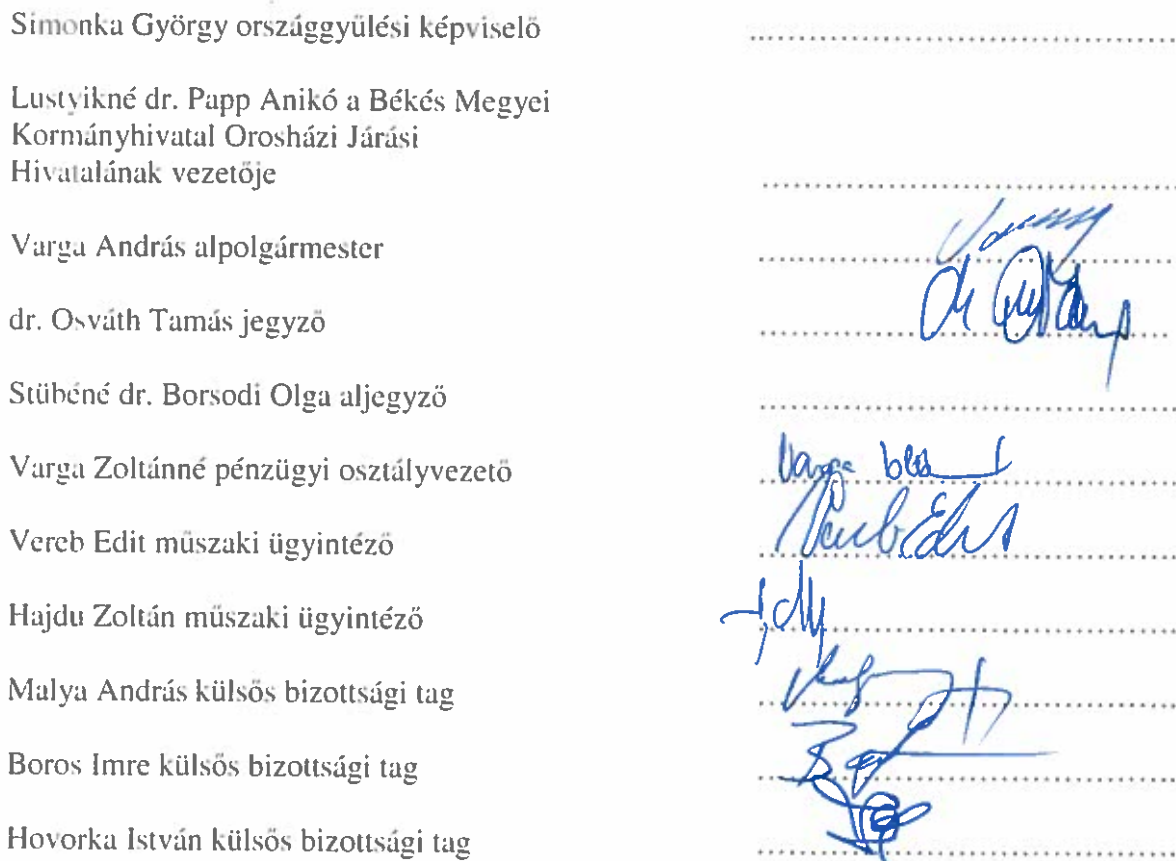 Simonka György országgyűlési képviselő
Lustyikné dr. Papp Anikó a Békés Megyei
Kormányhivatal Orosházi Járási
Hivatalának vezetője
Varga András alpolgármester
dr. Osváth Tamás jegyző
Stübéné dr. Borsodi Olga aljegyző
Varga Zoltánné pénzügyi osztályvezető Varga
Vereb Edit műszaki ügyintéző Vereb Edit
Hajdu Zoltán műszaki ügyintéző
Malya András külsős bizottsági tag
Boros Imre külsős bizottsági tag
Hovorka István külsős bizottsági tag